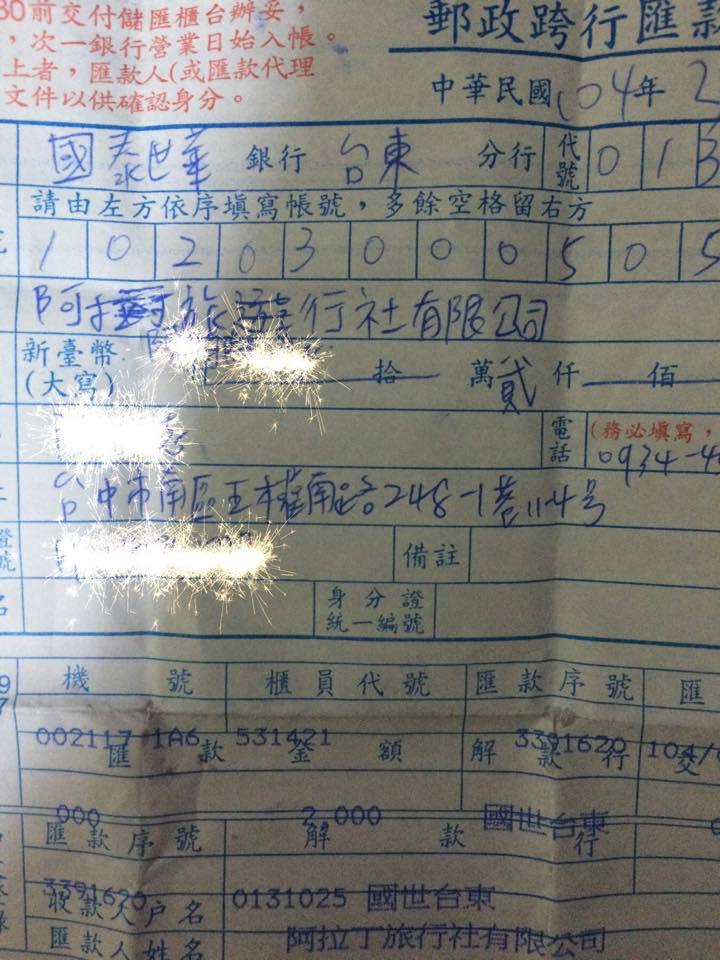 30前交付儲匯櫃台辦妥,
,次一銀行營業日始入帳。
上者,匯款人(或匯款代理
文件以供確認身分。
郵政跨行匯款
中華民國104年2
國泰世華 銀行 台東 分行 代號 0 1 3
請由左方依序填寫帳號,多餘空格留右方
1 0 2 0 3 0 0 0 5 0 5
旅遊行社有限公司
新臺幣
(大寫)
拾 萬 貳 仟 佰
電話
(務必填寫,
0934-4
台中市南區五權南路248-1巷11-4号
備註
身分證
統一編號
機號 櫃員代號 匯款序號 匯
002117 1A6 531421 3391620 104/
匯款金額 解款行 交
000 2,000 國世台東
匯款序號 解款行
3391620 0131025 國世台東
收款人戶名
阿拉丁旅行社有限公司
匯款人姓名